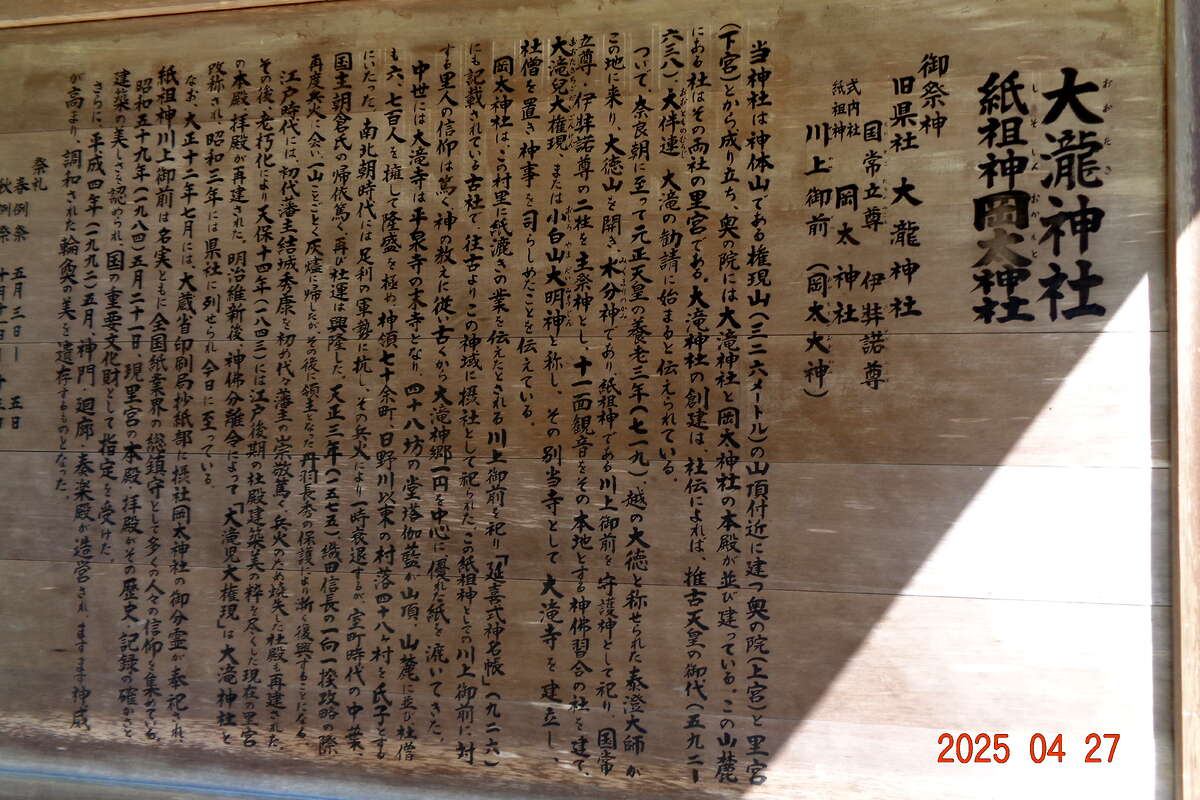 大瀧神社
おおたき
紙祖神 岡太神社
しそしん おかもと
御祭神
旧県社 大瀧神社
国常立尊 伊弉諾尊
式内社
紙祖神
岡太神社
川上御前(岡太大神)
当神社は神体山である権現山(三二六メートル)の山頂付近に建つ奥の院(上宮)と里宮
(下宮)とから成り立ち、奥の院には大滝神社と岡太神社の本殿が並び建っている。この山麓
にある社はその両社の里宮である。大滝神社の創建は、社伝によれば、推古天皇の御代(五九二ー
六三八)、大伴連大滝の勧請に始まると伝えられている。
ついで、奈良朝に至って元正天皇の養老三年(七一九)、越の大徳と称せられた泰澄大師が
この地に来り、大徳山を開き、水分神であり紙祖神である川上御前を守護神として祀り、国常
立尊・伊弉諾尊の二柱を主祭神とし、十一面観音をその本地とする神佛習合の社を建て、
大滝兒大権現、または小白山大明神と称し、その別当寺として大滝寺を建立し、
社僧を置き神事を司らしめたことを伝えている。
岡太神社は、この村里に紙漉きの業を伝えたとされる川上御前を祀り「延喜式神名帳」(九二六)
にも記載されている古社で、往古よりこの神域に摂社として祀られた。この紙祖神としての川上御前に対
する里人の信仰は篤く神の教えに従い古くから大滝神郷一円を中心に優れた紙を漉いてきた。
中世には大滝寺は平泉寺の末寺となり、四十八坊の堂塔伽藍が山頂、山麓に並び社僧
も六、七百人を擁して隆盛を極め、神領七十余町、日野川以東の村落四十八ヶ村を氏子とする
にいたった。南北朝時代には足利の軍勢に抗し、その兵火により一時衰退するが、室町時代の中葉
国主朝倉氏の帰依篤く、再び社運は興隆した。天正三年(一五七五)、織田信長の一向一揆攻略の際
再度兵火に会い一山ことごとく灰燼に帰したが、その後に領主となった丹羽長秀の保護により漸く復興することになる。
江戸時代には、初代藩主結城秀康を初め代々藩主の崇敬篤く兵火のため焼失した社殿も再建された。
その後、老朽化により天保十四年(一八四三)には江戸後期の社殿建築美の粋を尽くした現在の里宮
の本殿、拝殿が再建された。明治維新後、神佛分離令によって「大滝児大権現」は大滝神社と
改称され、昭和三年には県社に列せられ今日に至っている。
なお、大正十二年七月には、大蔵省印刷局抄紙部に摂社岡太神社の御分霊が奉祀され、
紙祖神川上御前は名実ともに全国紙業界の総鎮守として多くの人々の信仰を集めている。
昭和五十九年(一九八四)五月二十一日、現里宮の本殿・拝殿がその歴史、記録の確かさと
建築の美しさを認められ、国の重要文化財として指定を受けた。
さらに、平成四年(一九九二)五月、神門、廻廊、奏楽殿が造営され、ますます神威
が高まり、調和された輪奐の美を遺存するものとなった。
祭礼
春例祭 五月三日ー五日
秋例祭 十月十一日ー十三日
2025 04 27